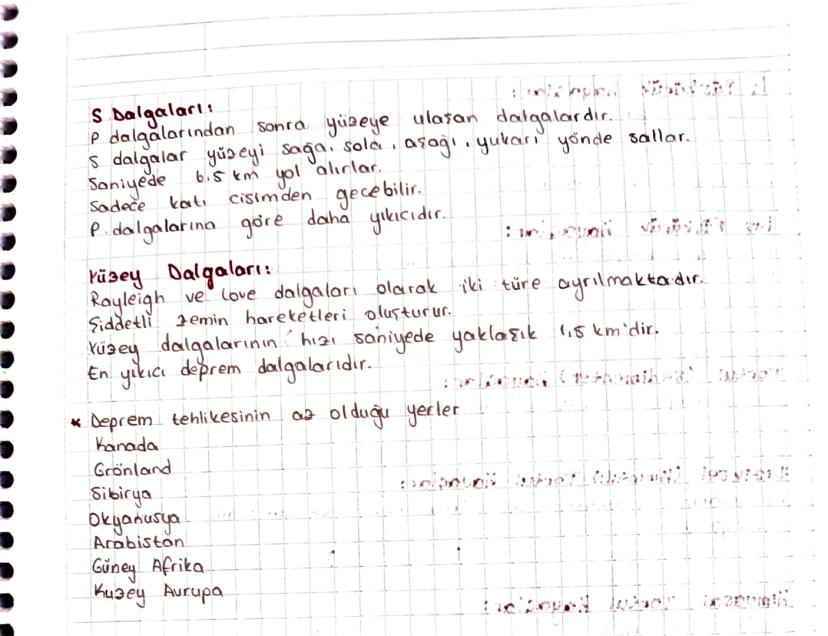 S Dalgaları:
P dalgalarından sonra yüzeye ulaşan dalgalardır.
S dalgalar yüzeyi sağa, sola, aşağı, yukarı yönde sallar.
Saniyede 6.5 km yol alırlar.
Sadece katı cisimden geçebilir.
P. dalgalarına göre daha yıkıcıdır.
Yüzey Dalgaları:
Rayleigh ve Love dalgaları olarak iki türe ayrılmaktadır.
Şiddetli zemin hareketleri oluşturur.
Yüzey dalgalarının hızı saniyede yaklaşık 1,5 km'dir.
En yıkıcı deprem dalgalarıdır.
* Deprem tehlikesinin az olduğu yerler
Kanada
Grönland
Sibirya
Okyanusya
Arabistan
Güney Afrika
Kuzey Avrupa